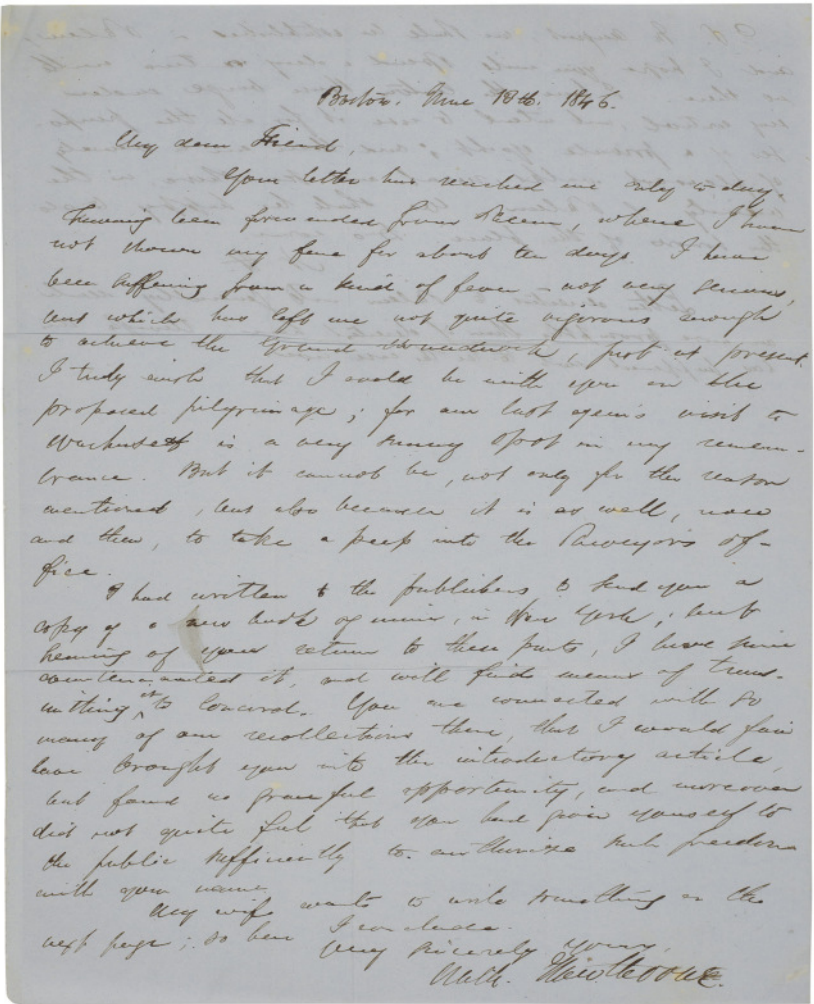 Boston. June 18th. 1846.
My dear Friend,
Your letter has reached me only to-day.
having been forwarded from Salem, where I have
not shown my face for about ten days. I have
been suffering from a kind of fever - not very serious,
but which has left me not quite vigorous enough
to achieve the Grand Monadnock, just at present.
I truly wish that I could be with you on the
proposed pilgrimage; for our last year's visit to
Wachusett is a very sunny spot in my remem-
brance. But it cannot be, not only for the reason
mentioned, but also because it is as well, now
and then, to take a peep into the Surveyor's of-
fice.
I had written to the publishers to send you a
copy of a new book of mine, in New York; but
hearing of your return to these parts, I have since
countermanded it, and will find means of trans-
mitting it to Concord. You are connected with so
many of our recollections there, that I would fain
have brought you into the introductory article,
but found no graceful opportunity, and moreover
did not quite feel that you had given yourself to
the public sufficiently to authorize such freedom
with your name.
My wife wants to write something on the
next page; so here I conclude.
Very sincerely yours,
Nath. Hawthorne.